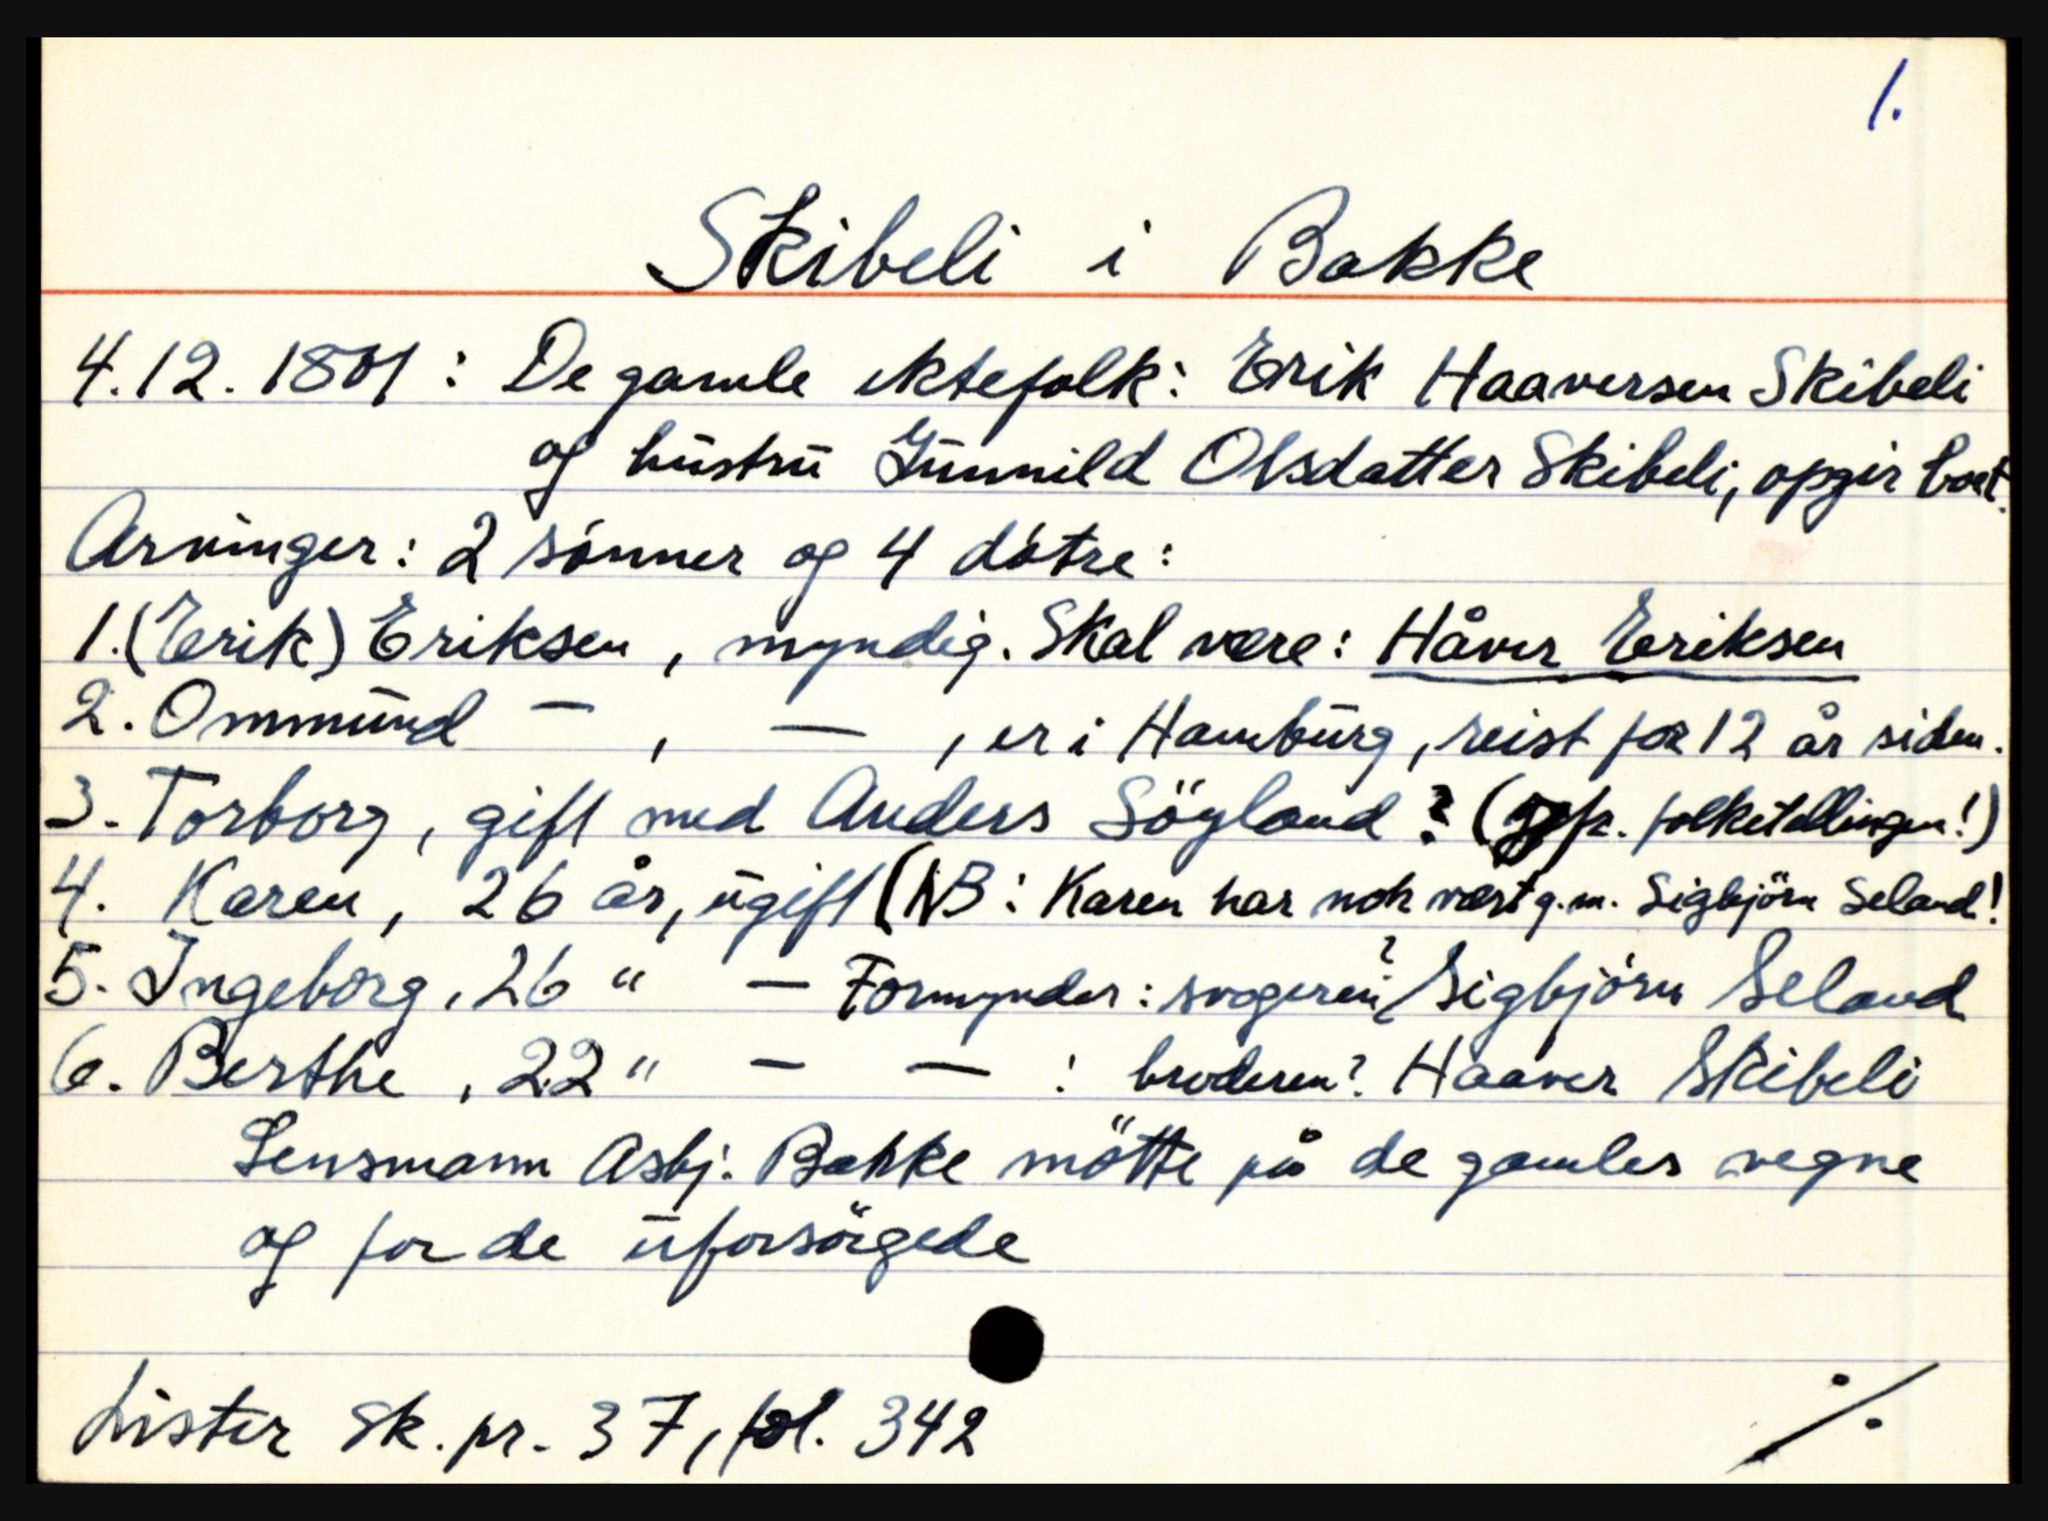 1.
Skibeli i Bakke
4.12.1801: De gamle ektefolk: Erik Haaversen Skibeli
og hustru Gunnild Olsdatter Skibeli, opgir boet.
Arvinger: 2 sønner og 4 døtre:
1. (Erik) Eriksen, myndig. Skal være: Håver Eriksen
2. Ommund — , — , er i Hamburg, reist for 12 år siden.
3. Torborg, gift med Anders Söyland? (jfr. folketellingen!)
4. Karen, 26 år, ugift (NB: Karen har nok vært g.m. Sigbjörn Seland!
5. Ingeborg, 26 " — Formynder: svogeren? Sigbjörn Seland
6. Berthe, 22 " — — : broderen? Haaver Skibeli
Lensmann Asbj. Bakke mötte på de gamles vegne
og for de uforsörgede
Lister sk. pr. 37, fol. 342
./.